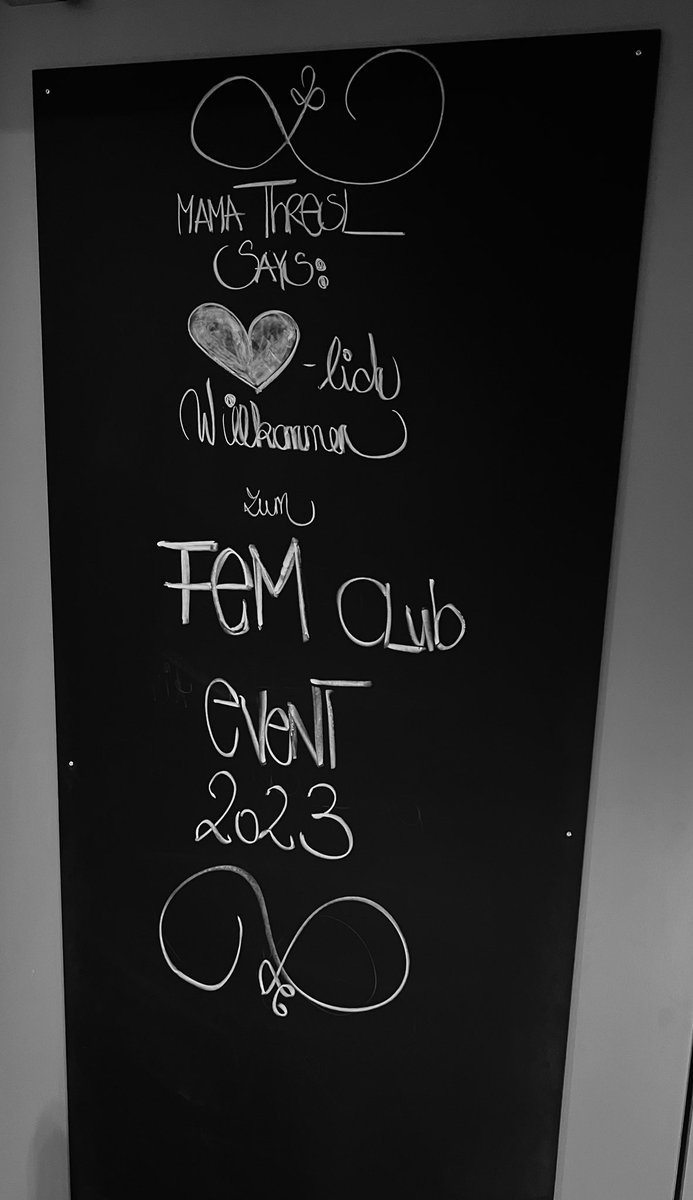 MAMA ThRESL
SAYS:
-lich
Willkommen
zum
FeM CLub
eveNT
2023